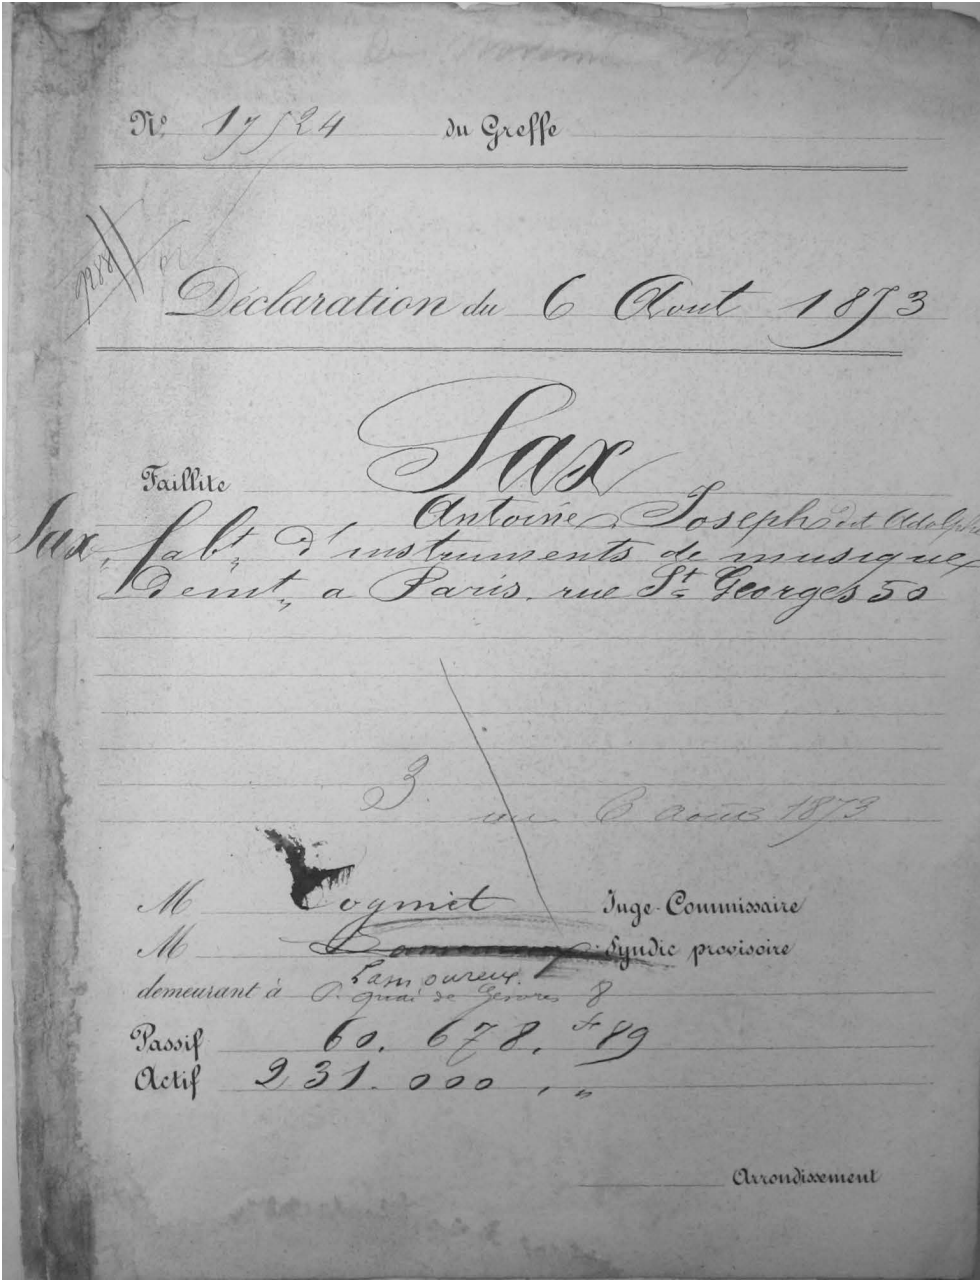 Nº 17524 du Greffe
Déclaration du 6 Aout 1873
Sax
Faillite
Antoine Joseph dit Adolphe
Sax, fabt d'instruments de musique
demt, a Paris, rue St Georges 50
3
6 août 1873
M Juge-Commissaire
M Syndic provisoire
Lamoureux.
demeurant à P. quai de Gesvres 8
Passif 60.678, f 89
Actif 231.000 , "
Arrondissement